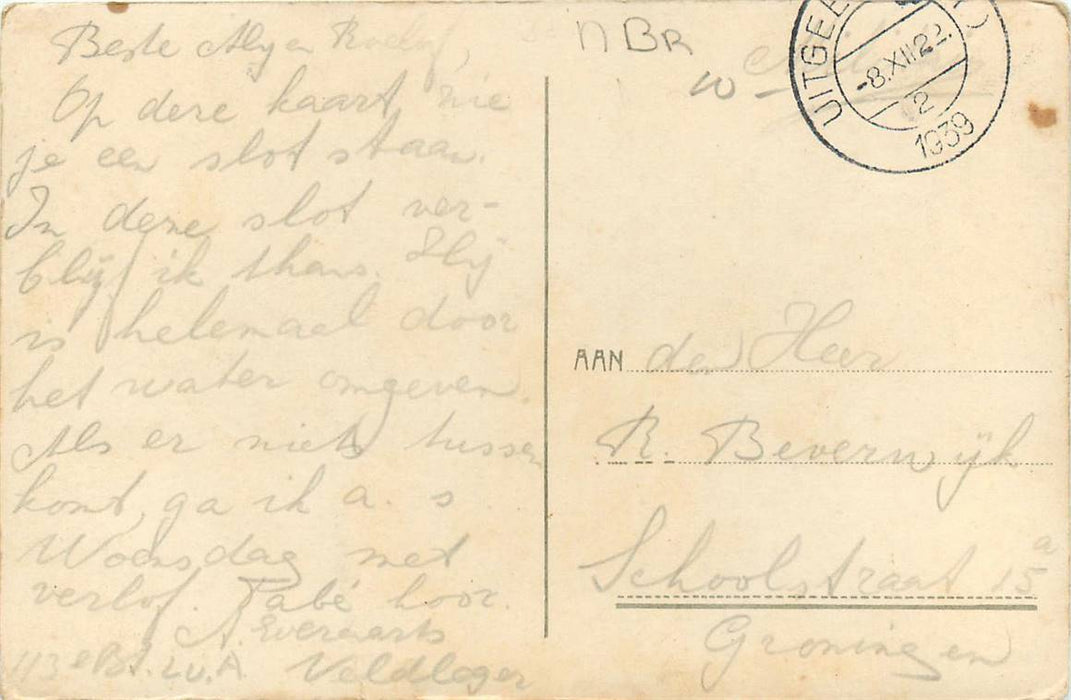 Beste Aly en Roelof,
Op deze kaart, zie
je een slot staan.
In deze slot ver-
blijf ik thans. Hij
is helemael door
het water omgeven.
Als er niets tussen
komt, ga ik a. s
Woensdag met
verlof. Tabé hoor.
A. Everaarts
113e Bt. Lu. A Veldleger
NBR
UITGEE
-8.XII.22.
2
1939
AAN den Heer
R. Beverwijk
Schoolstraat 15a
Groningen